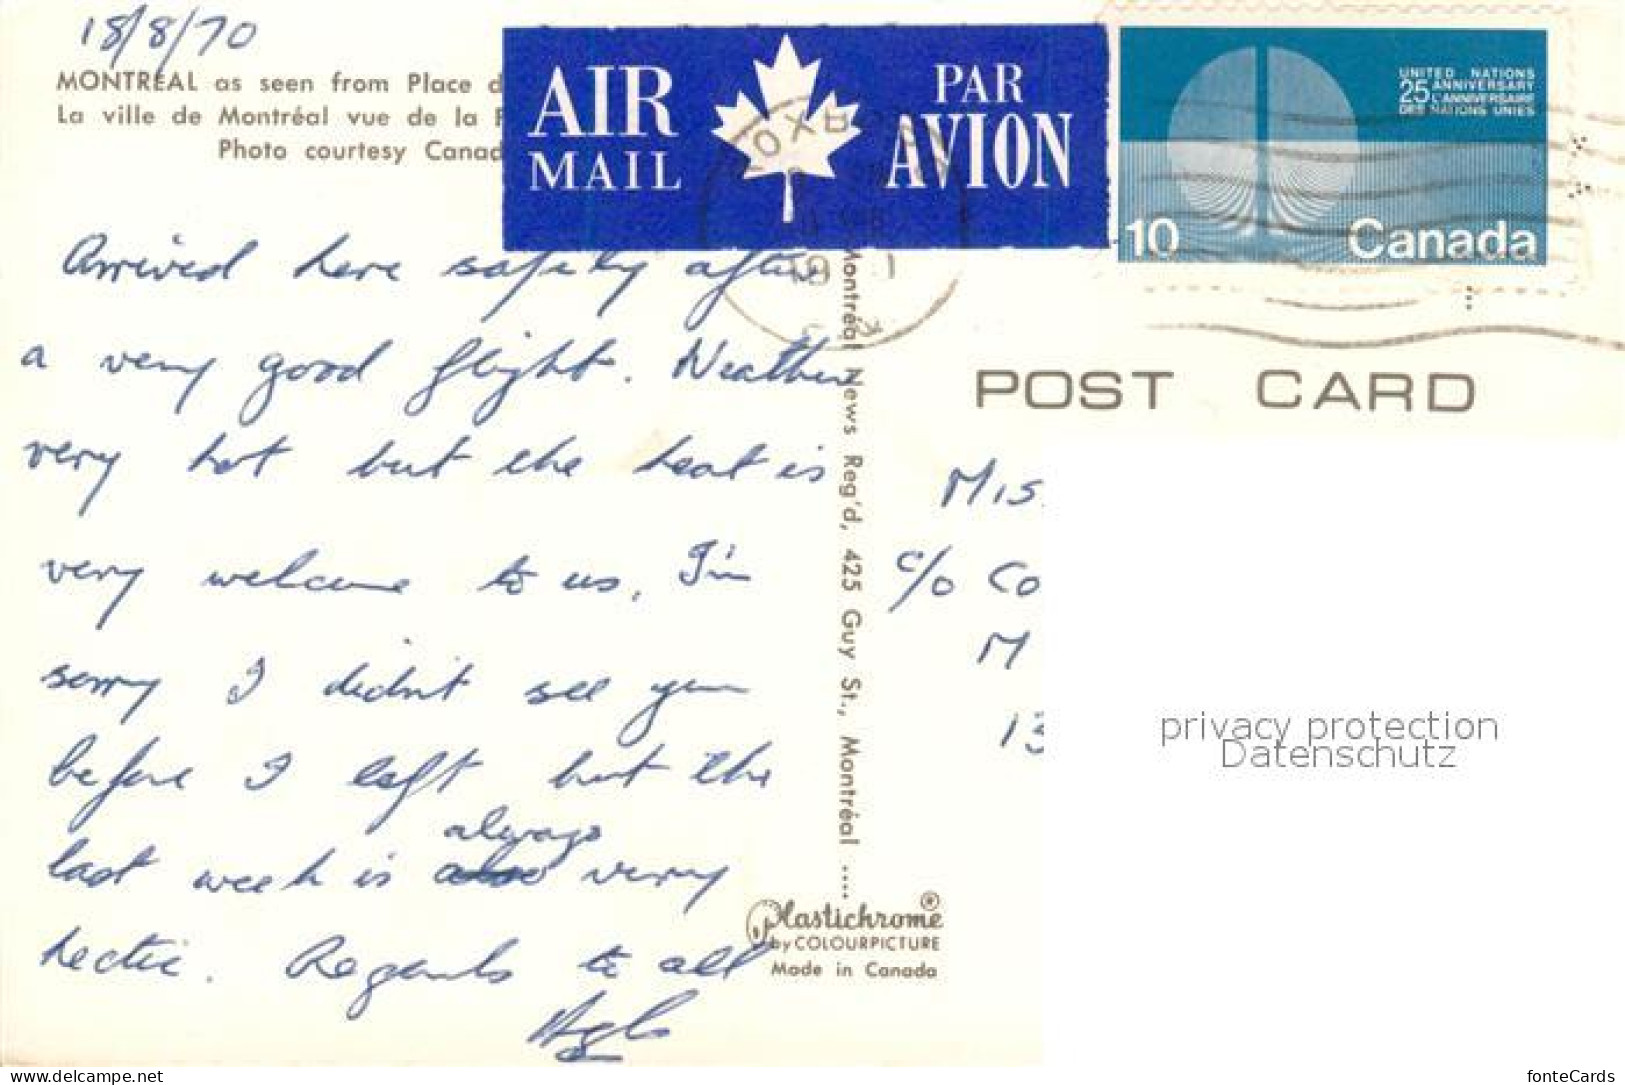 18/8/70
MONTREAL as seen from Place d
La ville de Montréal vue de la P
Photo courtesy Canad
AIR MAIL
PAR AVION
UNITED NATIONS
25 ANNIVERSARY
L'ANNIVERSAIRE
DES NATIONS UNIES
10 Canada
Arrived here safely after
a very good flight. Weather
very hot but the heat is
very welcome to us. I'm
sorry I didn't see you
before I left but the
always
last week is very
hectic. Regards to all
Montréal News Reg'd, 425 Guy St., Montréal ....
POST CARD
Mis
c/o Co
M
13
privacy protection
Datenschutz
Plastichrome®
by COLOURPICTURE
Made in Canada
www.ansichtskarten-center.de
fonteCards